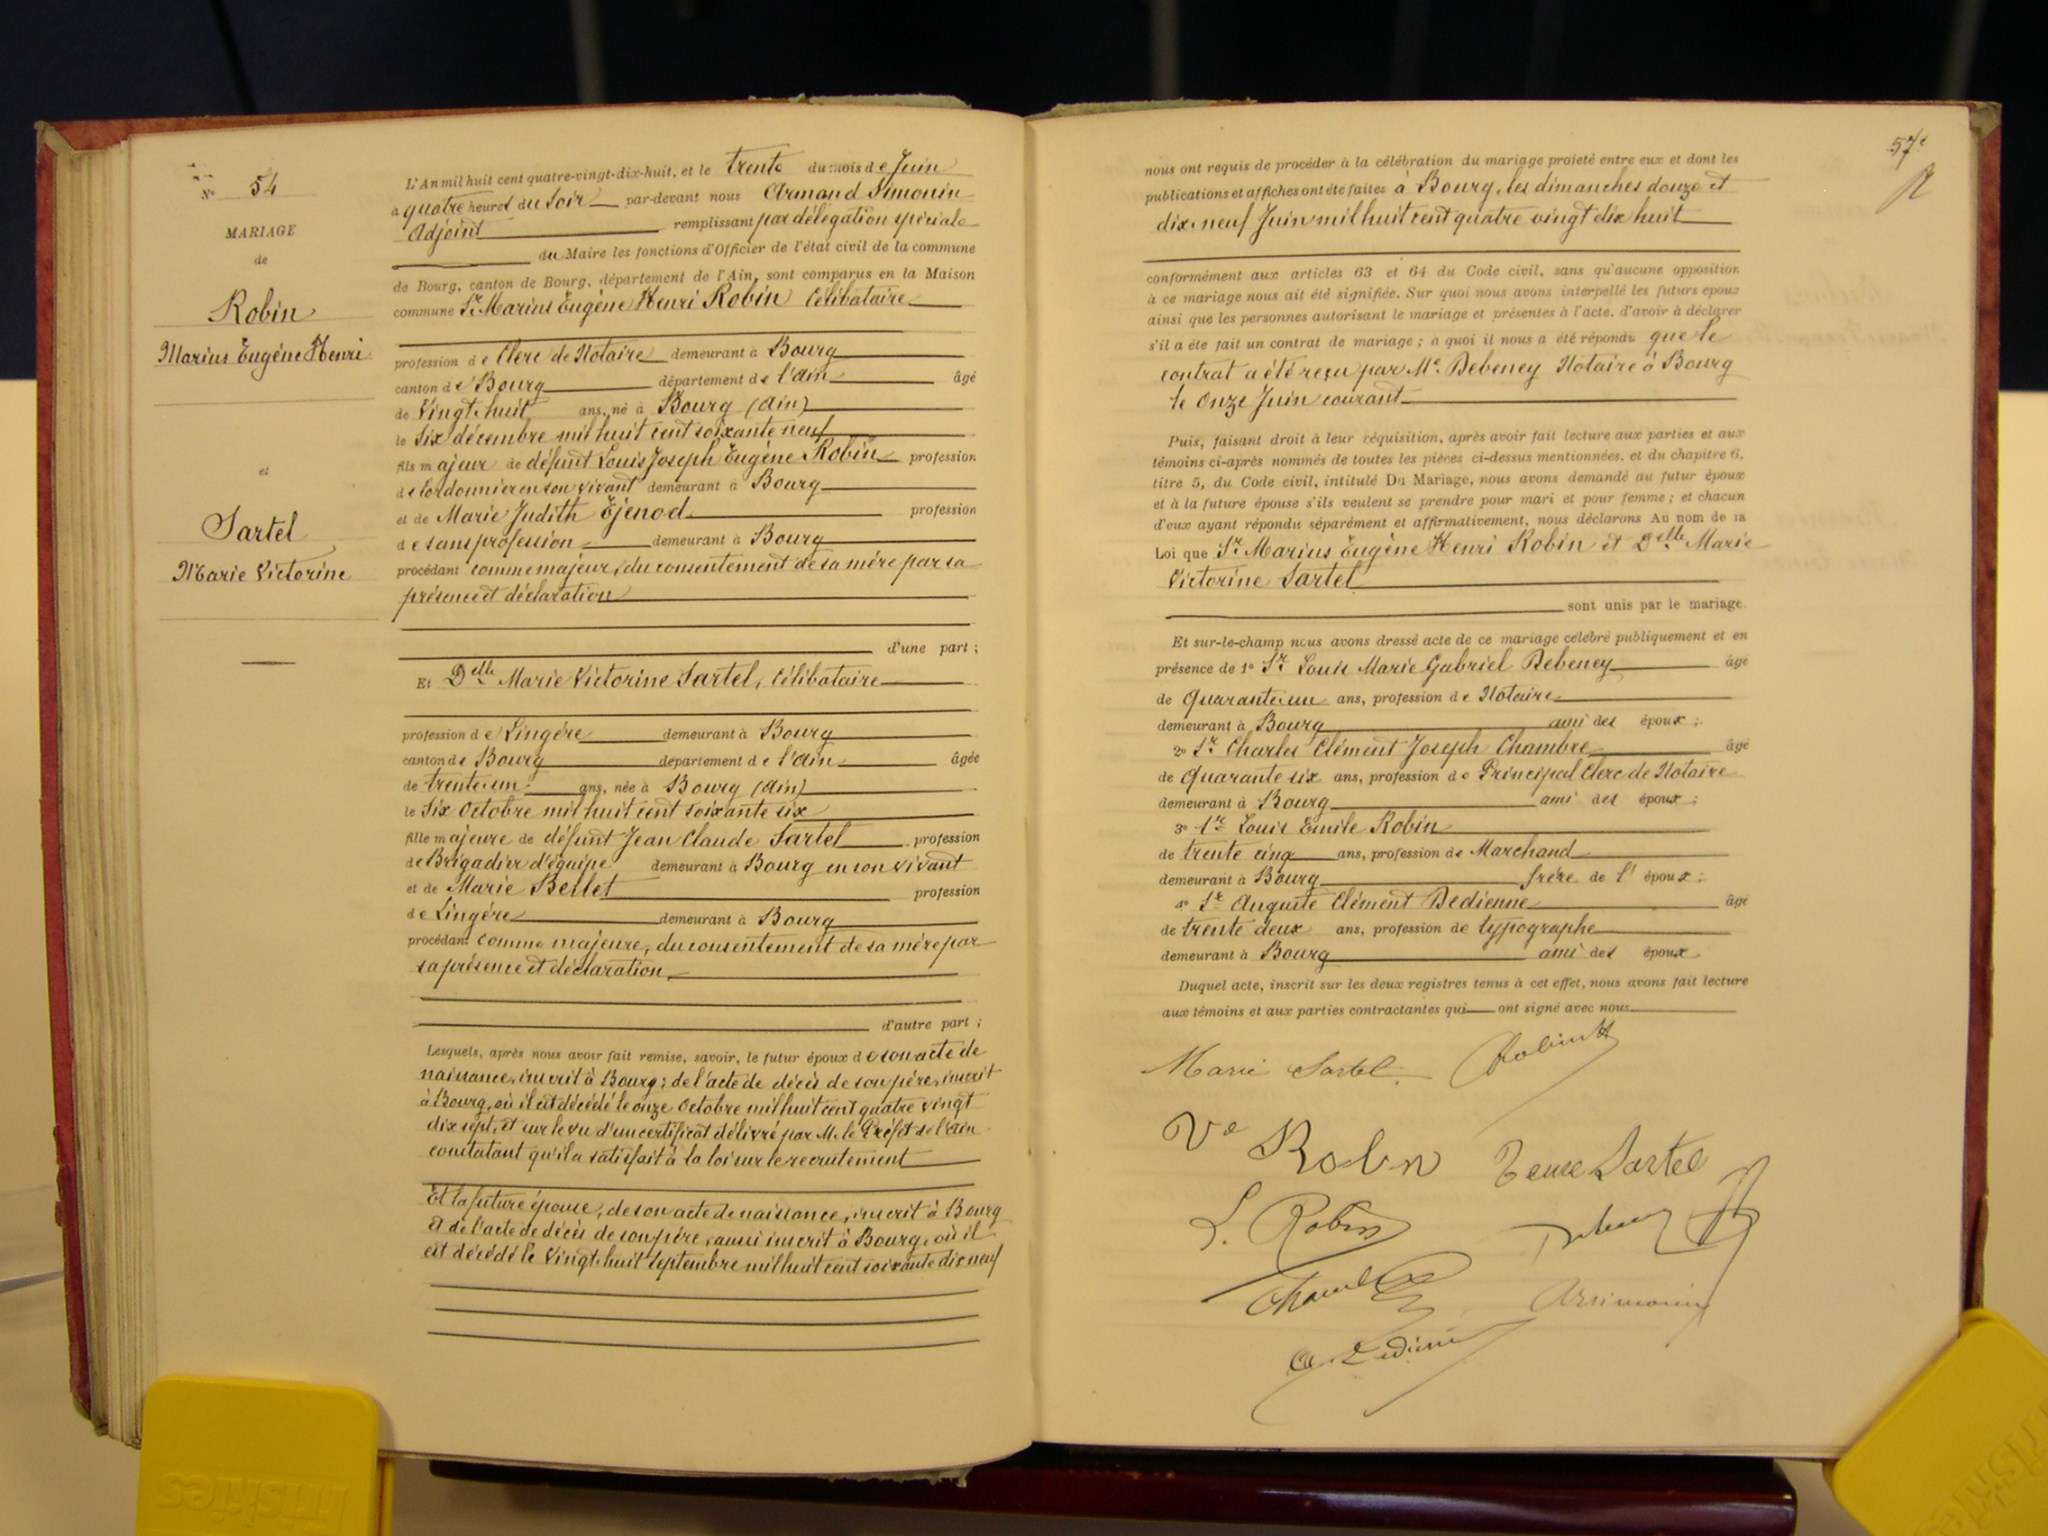 Nº 54
MARIAGE
de
Robin
Marius Eugène Henri
et
Sartel
Marie Victorine
L'An mil huit cent quatre-vingt-dix-huit, et le trente du mois de Juin
à quatre heures du Soir par-devant nous Armand Simonin
Adjoint remplissant par délégation spéciale
du Maire les fonctions d'Officier de l'état civil de la commune
de Bourg, canton de Bourg, département de l'Ain, sont comparus en la Maison
commune Sr. Marius Eugène Henri Robin Célibataire
profession de Clerc de Notaire demeurant à Bourg
canton de Bourg département de l'Ain âgé
de Vingt-huit ans, né à Bourg (Ain)
le Six décembre mil huit cent soixante neuf
fils majeur de défunt Louis Joseph Eugène Robin profession
de Cordonnier en son vivant demeurant à Bourg
et de Marie Judith Ejenod profession
de sans profession demeurant à Bourg
procédant comme majeur, du consentement de sa mère par sa
présence et déclaration
d'une part ;
Et Delle Marie Victorine Sartel, Célibataire
profession de Lingère demeurant à Bourg
canton de Bourg département de l'Ain âgée
de trente-un ans, née à Bourg (Ain)
le Six Octobre mil huit cent soixante six
fille majeure de défunt Jean Claude Sartel profession
de Brigadier d'équipe demeurant à Bourg en son vivant
et de Marie Bellet profession
de Lingère demeurant à Bourg
procédant comme majeure, du consentement de sa mère par
sa présence et déclaration
d'autre part ;
Lesquels, après nous avoir fait remise, savoir, le futur époux de son acte de
naissance, inscrit à Bourg ; de l'acte de décès de son père, inscrit
à Bourg, où il est décédé le onze Octobre mil huit cent quatre vingt
dix sept, et sur le vu d'un certificat délivré par M. le Préfet de l'Ain
constatant qu'il a satisfait à la loi sur le recrutement
Et la future épouse, de son acte de naissance, inscrit à Bourg
et de l'acte de décès de son père, aussi inscrit à Bourg, où il
est décédé le Vingt-huit Septembre mil huit cent soixante dix neuf
57e
nous ont requis de procéder à la célébration du mariage projeté entre eux et dont les
publications et affiches ont été faites à Bourg, les dimanches douze et
dix-neuf Juin mil huit cent quatre vingt dix huit
conformément aux articles 63 et 64 du Code civil, sans qu'aucune opposition
à ce mariage nous ait été signifiée. Sur quoi nous avons interpellé les futurs époux
ainsi que les personnes autorisant le mariage et présentes à l'acte, d'avoir à déclarer
s'il a été fait un contrat de mariage ; à quoi il nous a été répondu que le
contrat a été reçu par Me. Debeney Notaire à Bourg
le Onze Juin courant
Puis, faisant droit à leur réquisition, après avoir fait lecture aux parties et aux
témoins ci-après nommés de toutes les pièces ci-dessus mentionnées, et du chapitre 6,
titre 5, du Code civil, intitulé Du Mariage, nous avons demandé au futur époux
et à la future épouse s'ils veulent se prendre pour mari et pour femme ; et chacun
d'eux ayant répondu séparément et affirmativement, nous déclarons Au nom de la
Loi que Sr. Marius Eugène Henri Robin et Delle Marie
Victorine Sartel
sont unis par le mariage
Et sur-le-champ nous avons dressé acte de ce mariage célébré publiquement et en
présence de 1º Sr. Louis Marie Gabriel Debeney âgé
de Quarante-un ans, profession de Notaire
demeurant à Bourg ami des époux ;
2º Sr. Charles Clément Joseph Chambre âgé
de Quarante six ans, profession de Principal Clerc de Notaire
demeurant à Bourg ami des époux ;
3º Sr. Louis Emile Robin
de trente cinq ans, profession de Marchand
demeurant à Bourg frère de l'époux ;
4º Sr. Auguste Clément Dedienne âgé
de trente deux ans, profession de typographe
demeurant à Bourg ami des époux
Duquel acte, inscrit sur les deux registres tenus à cet effet, nous avons fait lecture
aux témoins et aux parties contractantes qui ont signé avec nous
Marie Sartel Robin
Ve Robin Veuve Sartel
L. Robin